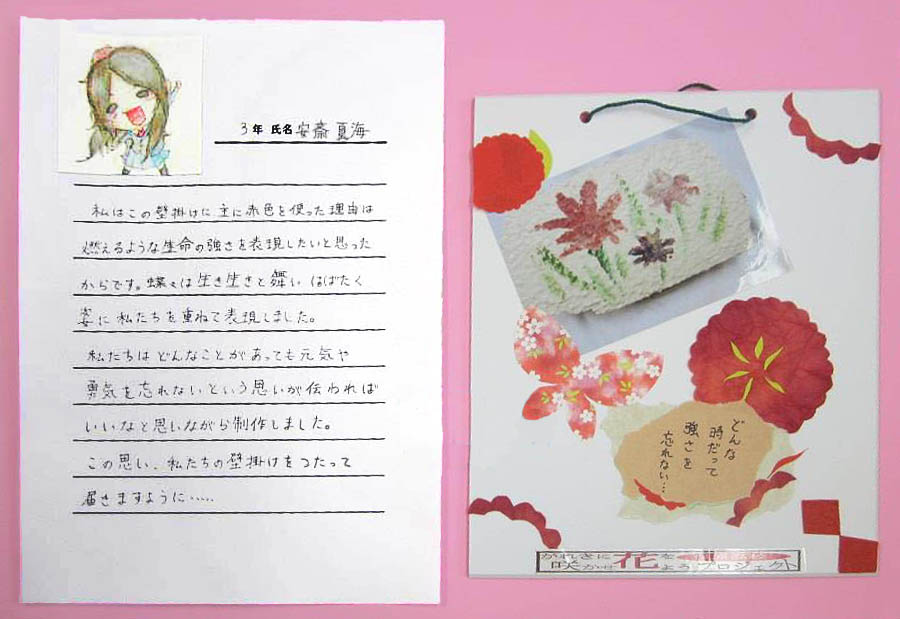 3年 氏名 安齋 夏海
私はこの壁掛けに主に赤色を使った理由は
燃えるような生命の強さを表現したいと思った
からです。蝶々は生き生きと舞い はばたく
姿に私たちを重ねて表現しました。
私たちは どんなことがあっても元気や
勇気を忘れないという思いが伝われば
いいなと思いながら制作しました。
この思い、私たちの壁掛けをつたって
届きますように‥‥‥
どんな
時だって
強さを
忘れない…
かれきに花を
咲かせようプロジェクト